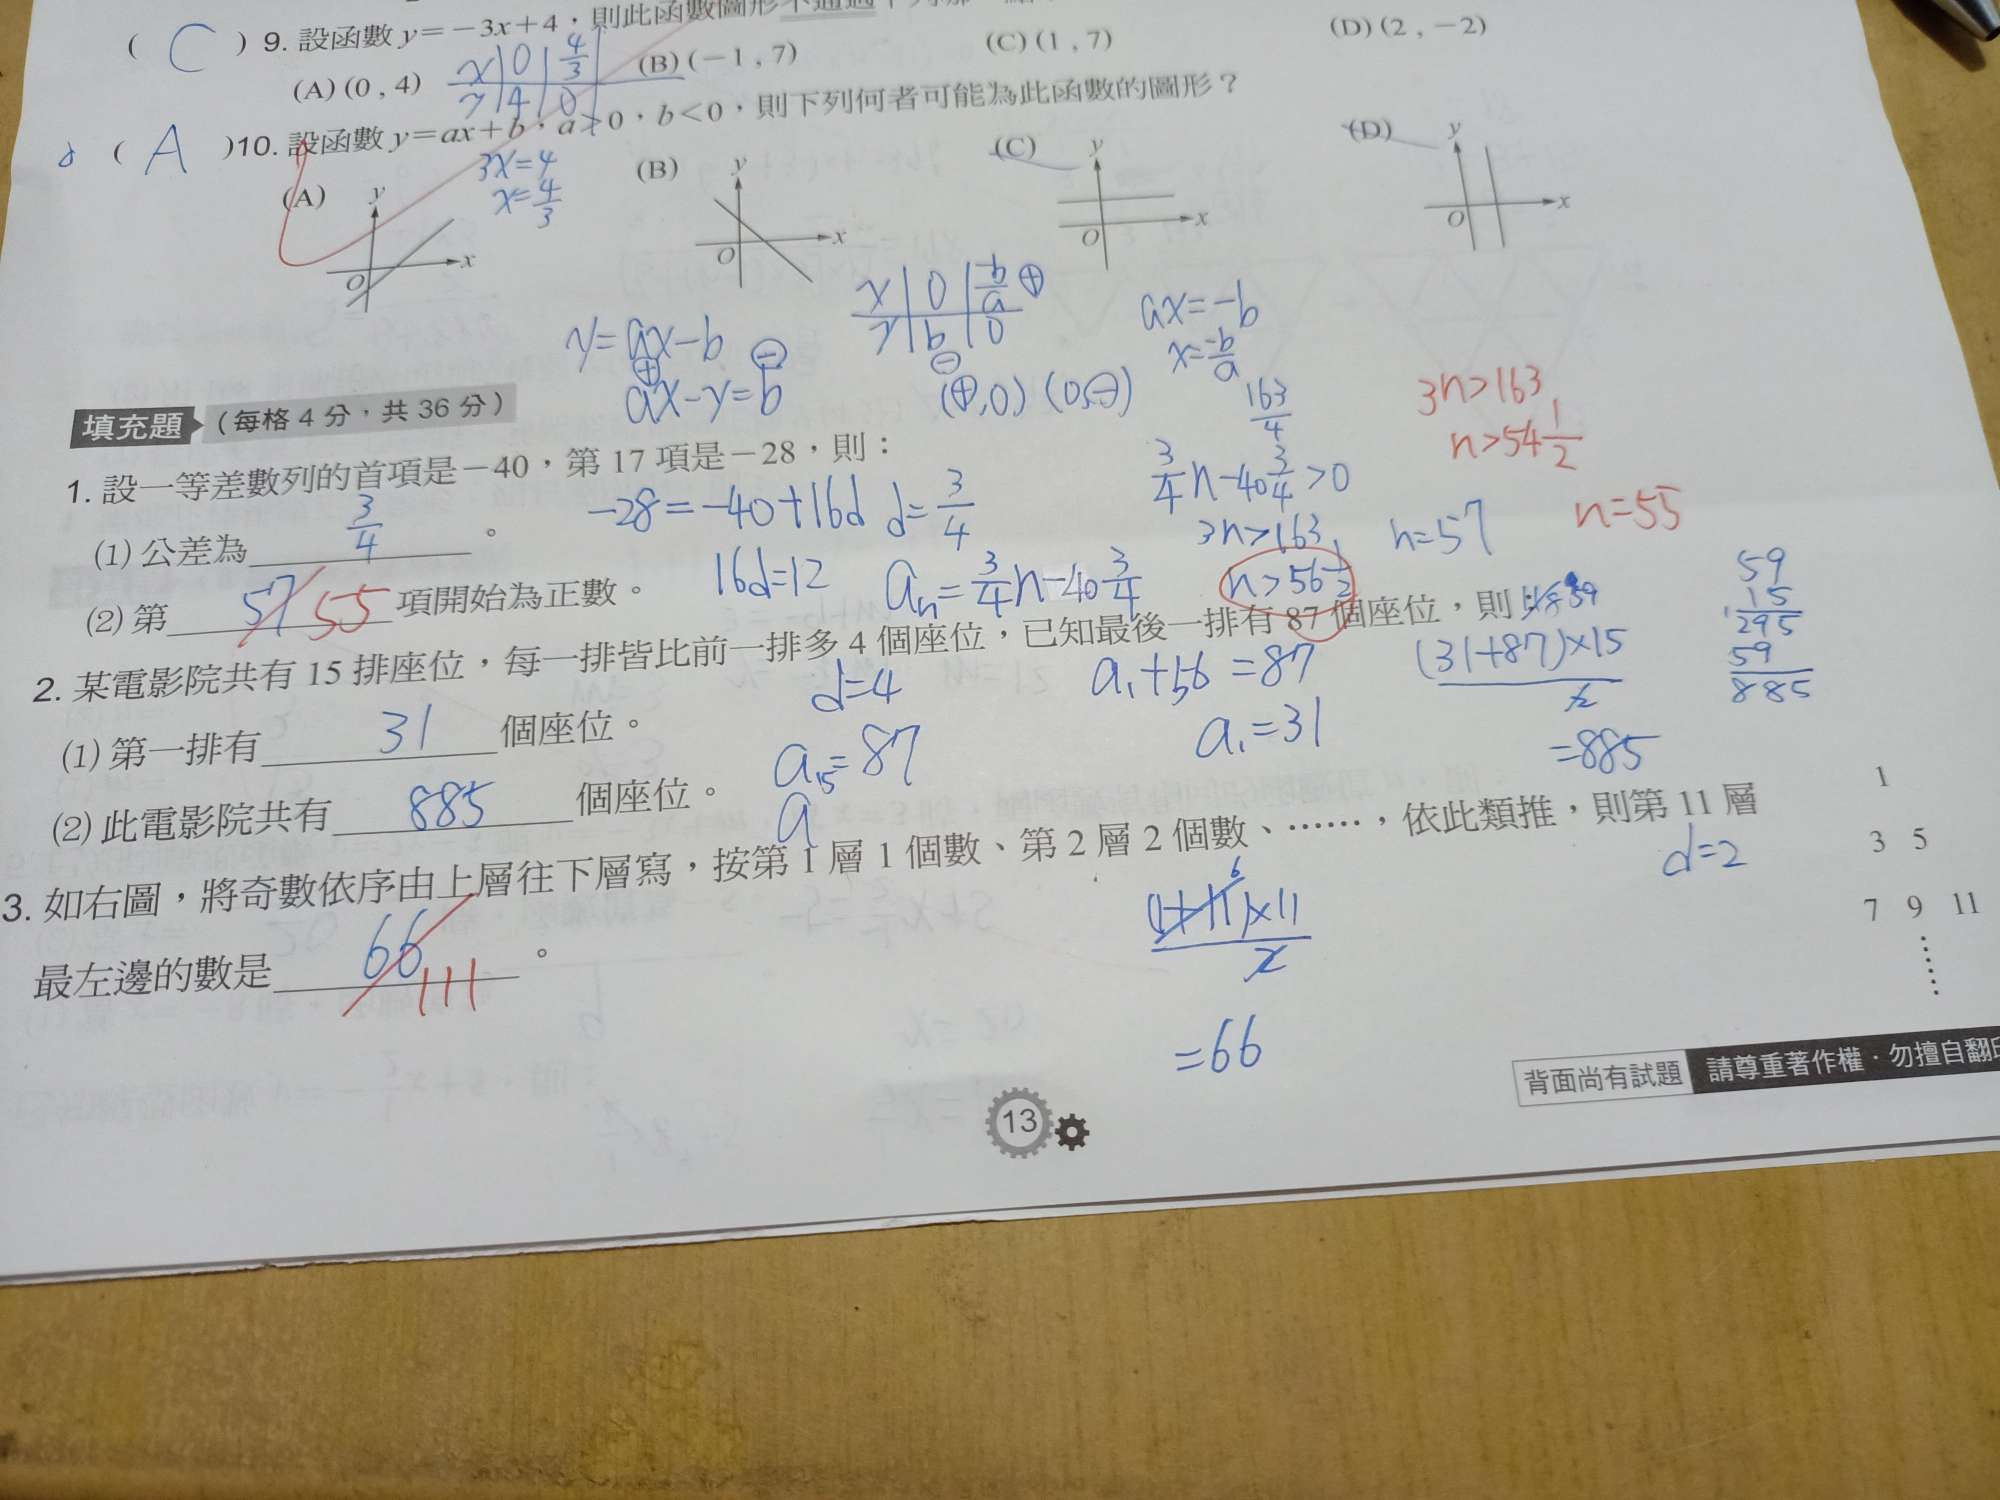 ( C ) 9. 設函數 y=-3x+4，則此函數圖形不通過下列哪一點
(A) (0 , 4) (B) (-1 , 7) (C) (1 , 7) (D) (2 , -2)
x 0 4/3
y 4 0
( A ) 10. 設函數 y=ax+b，a>0，b<0，則下列何者可能為此函數的圖形？
3x=4
x=4/3
(A) y x O
(B) y x O
(C) y x O
(D) y x O
y=ax-b
ax-y=b
⊕ ⊖
x 0 -b/a ⊕
y b 0
⊖
(⊕,0) (0,⊖)
ax=-b
x=-b/a
填充題 (每格 4 分，共 36 分)
163/4
3n>163
n>54 1/2
n=55
1. 設一等差數列的首項是-40，第 17 項是-28，則：
-28=-40+16d d=3/4
3/4n-40 3/4>0
(1) 公差為 3/4 。
16d=12 an=3/4n-40 3/4
3n>163
n>56 1/2
n=57
(2) 第 57 55 項開始為正數。
2. 某電影院共有 15 排座位，每一排皆比前一排多 4 個座位，已知最後一排有 87 個座位，則：
d=4 a1+56=87
(31+87)×15
2
=885
59
15
295
59
885
(1) 第一排有 31 個座位。
a15=87 a1=31
(2) 此電影院共有 885 個座位。
a
3. 如右圖，將奇數依序由上層往下層寫，按第 1 層 1 個數、第 2 層 2 個數、……，依此類推，則第 11 層
最左邊的數是 66 111 。
d=2
(1+11)×11
6
2
=66
1
3 5
7 9 11
⋮
背面尚有試題 請尊重著作權．勿擅自翻印
13